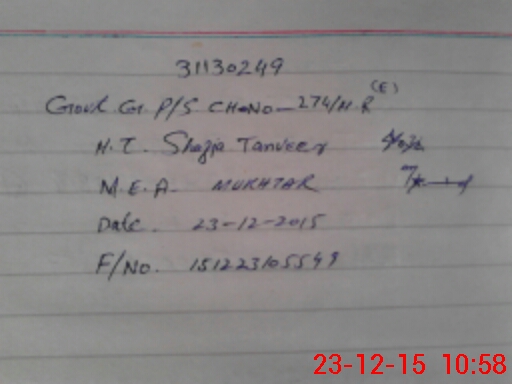 31130249
Govt Gr P/S CH-NO-274/H.R (E)
H.T. Shazia Tanveer
M.E.A. MUKHTAR
Date. 23-12-2015
F/No. 151223105549
23-12-15 10:58